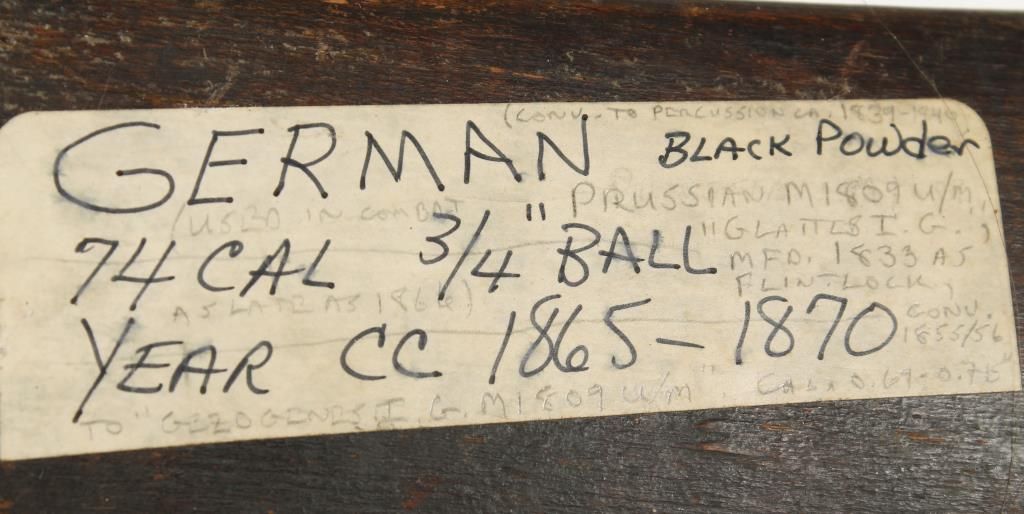 (CONV. TO PERCUSSION CA. 1839-1840
GERMAN BLACK Powder
PRUSSIAN M1809 U/M,
(USED IN COMBAT
74 CAL 3/4" BALL
"GLATTES I. G.,
MFD. 1833 AS
FLINTLOCK,
AS LATE AS 1866)
YEAR CC 1865-1870
CONV.
1855/56
TO "GEZOGENES I. G. M1809 U/M". CAL. 0.69-0.75